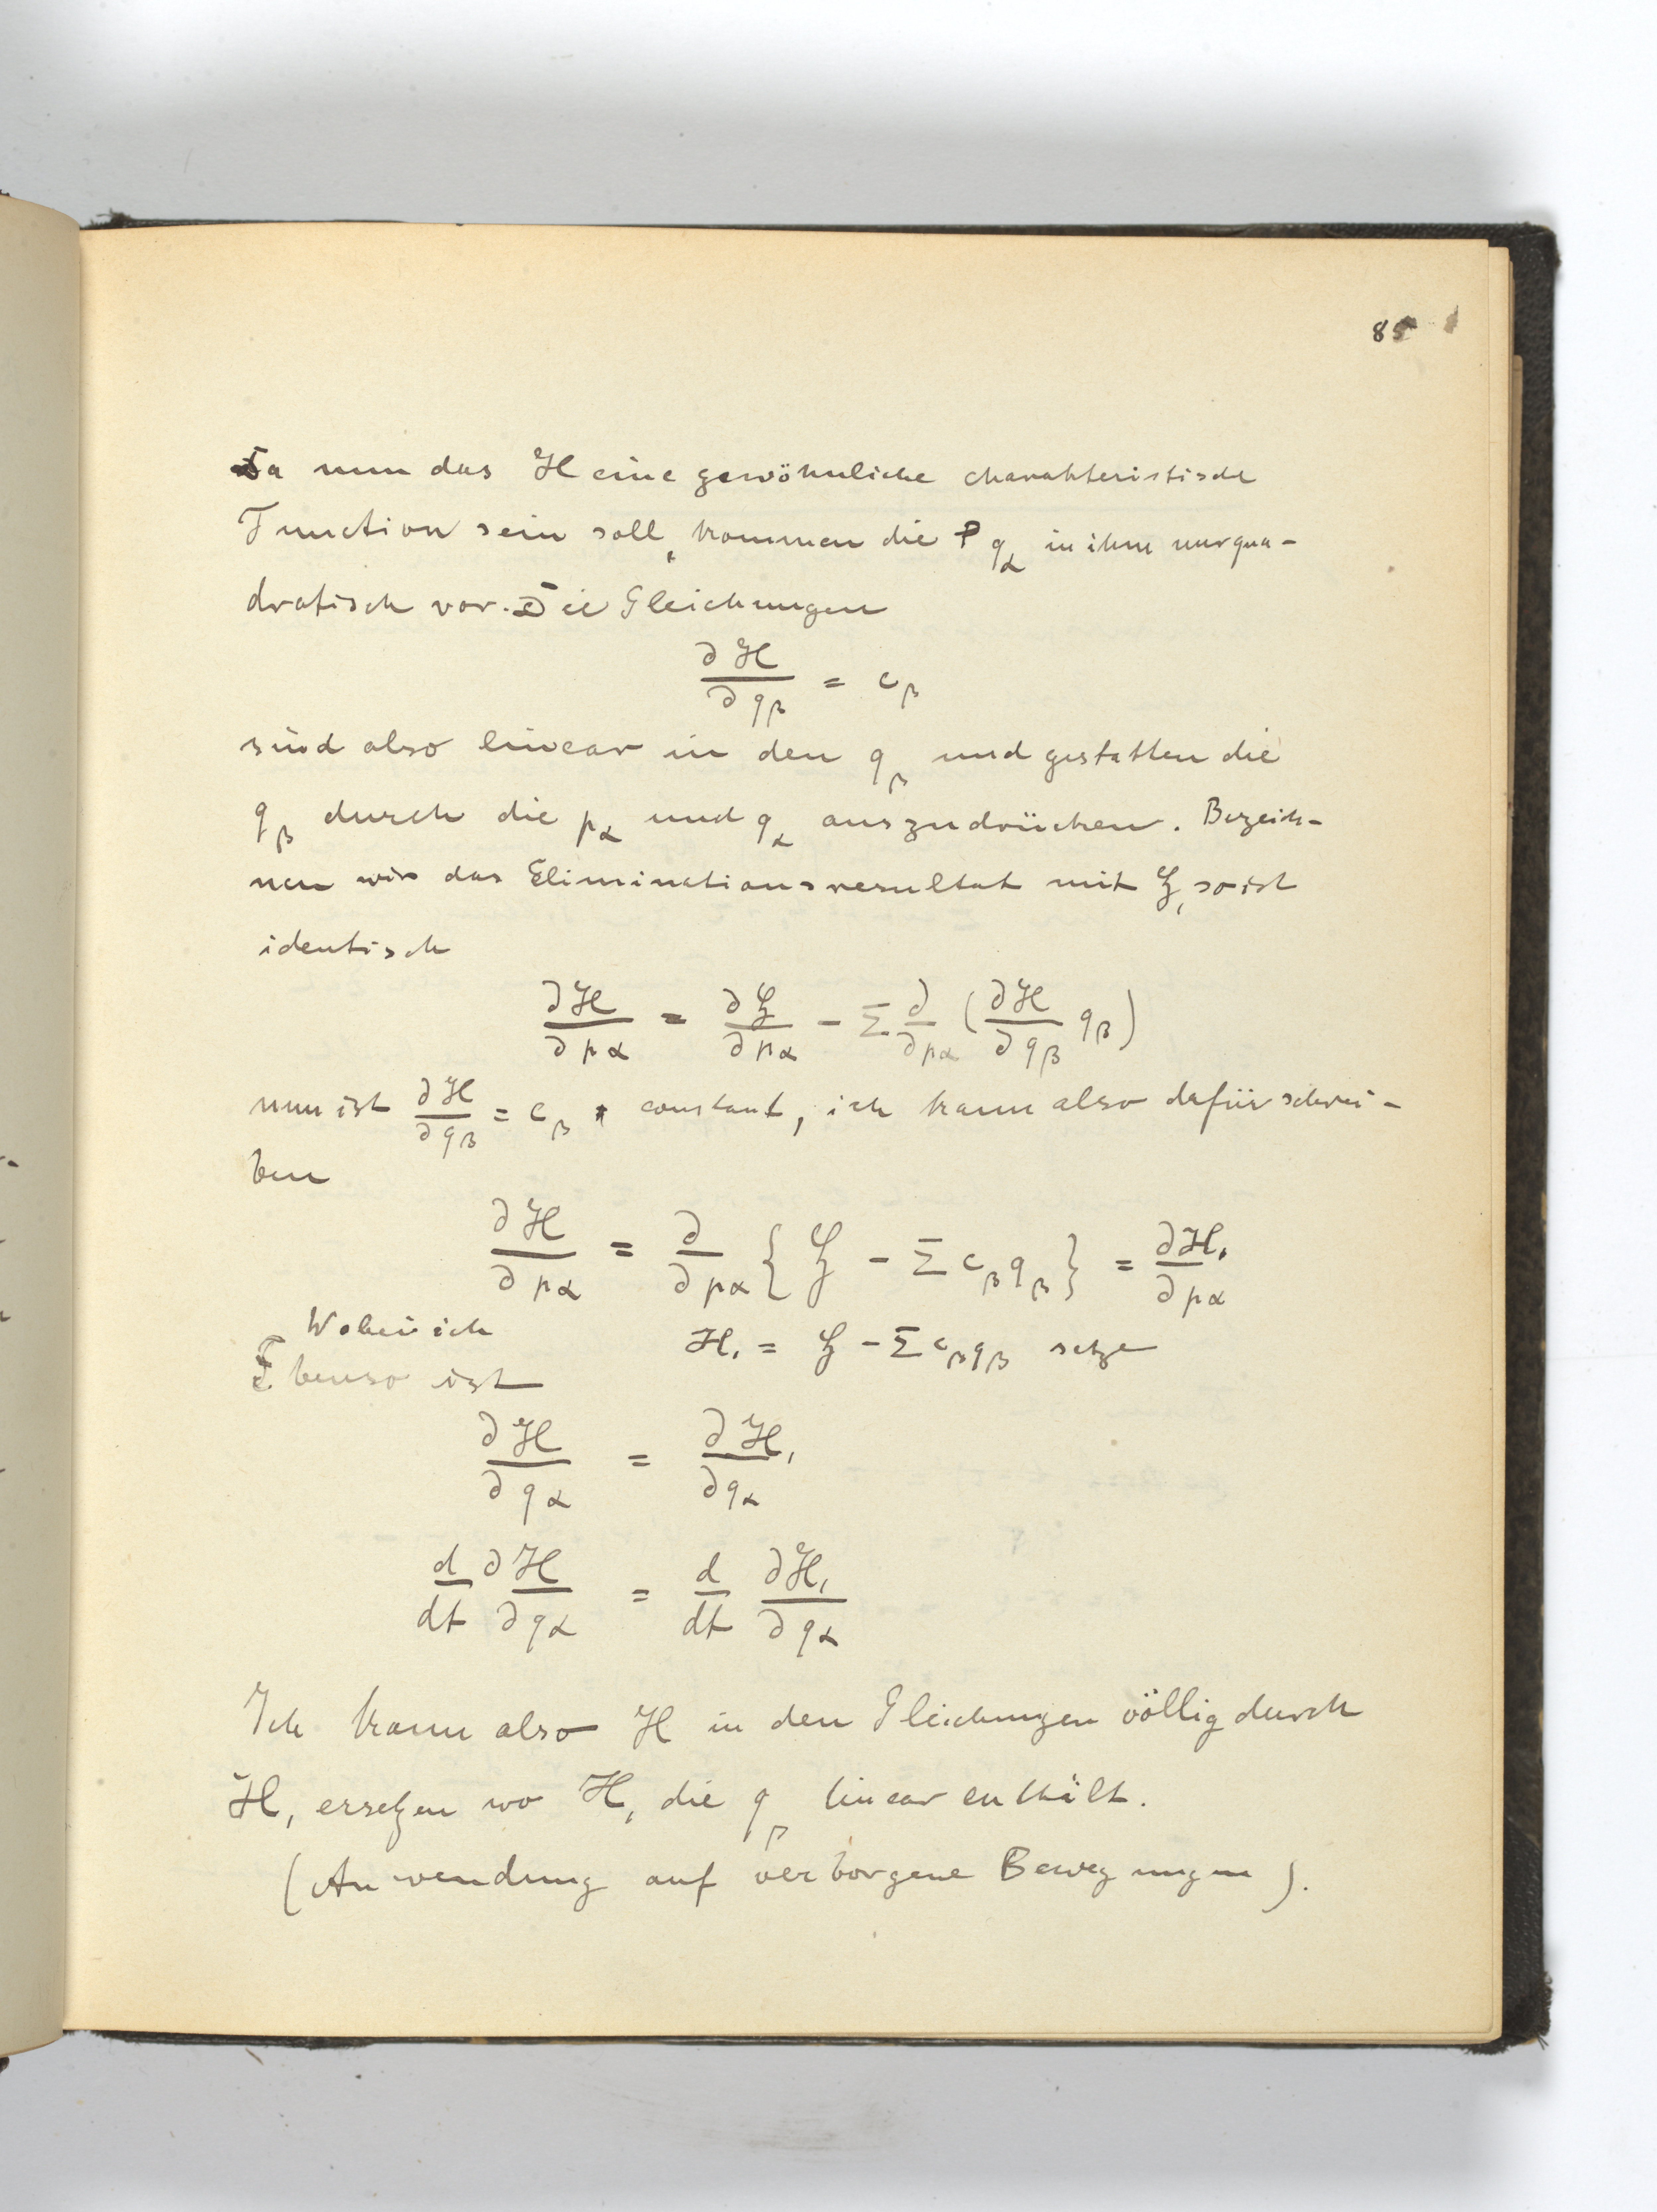 85
Da nun das H eine gewöhnliche charakteristische
Function sein soll, kommen die q_α in ihm nur qua-
dratisch vor. Die Gleichungen
∂H/∂q_β = c_β
sind also linear in den q_β und gestatten die
q_β durch die p_α und q_α auszudrücken. Bezeich-
nen wir das Eliminationsresultat mit ℌ, so ist
identisch
∂H/∂p_α = ∂ℌ/∂p_α - Σ ∂/∂p_α (∂H/∂q_β q_β)
nun ist ∂H/∂q_β = c_β constant, ich kann also dafür schrei-
ben
∂H/∂p_α = ∂/∂p_α {ℌ - Σ c_β q_β} = ∂H₁/∂p_α
Wobei ich H₁ = ℌ - Σ c_β q_β setze
Ebenso ist
∂H/∂q_α = ∂H₁/∂q_α
d/dt ∂H/∂q_α = d/dt ∂H₁/∂q_α
Ich kann also H in den Gleichungen völlig durch
H₁ ersetzen wo H₁ die q_β linear enthält.
(Anwendung auf verborgene Bewegungen).